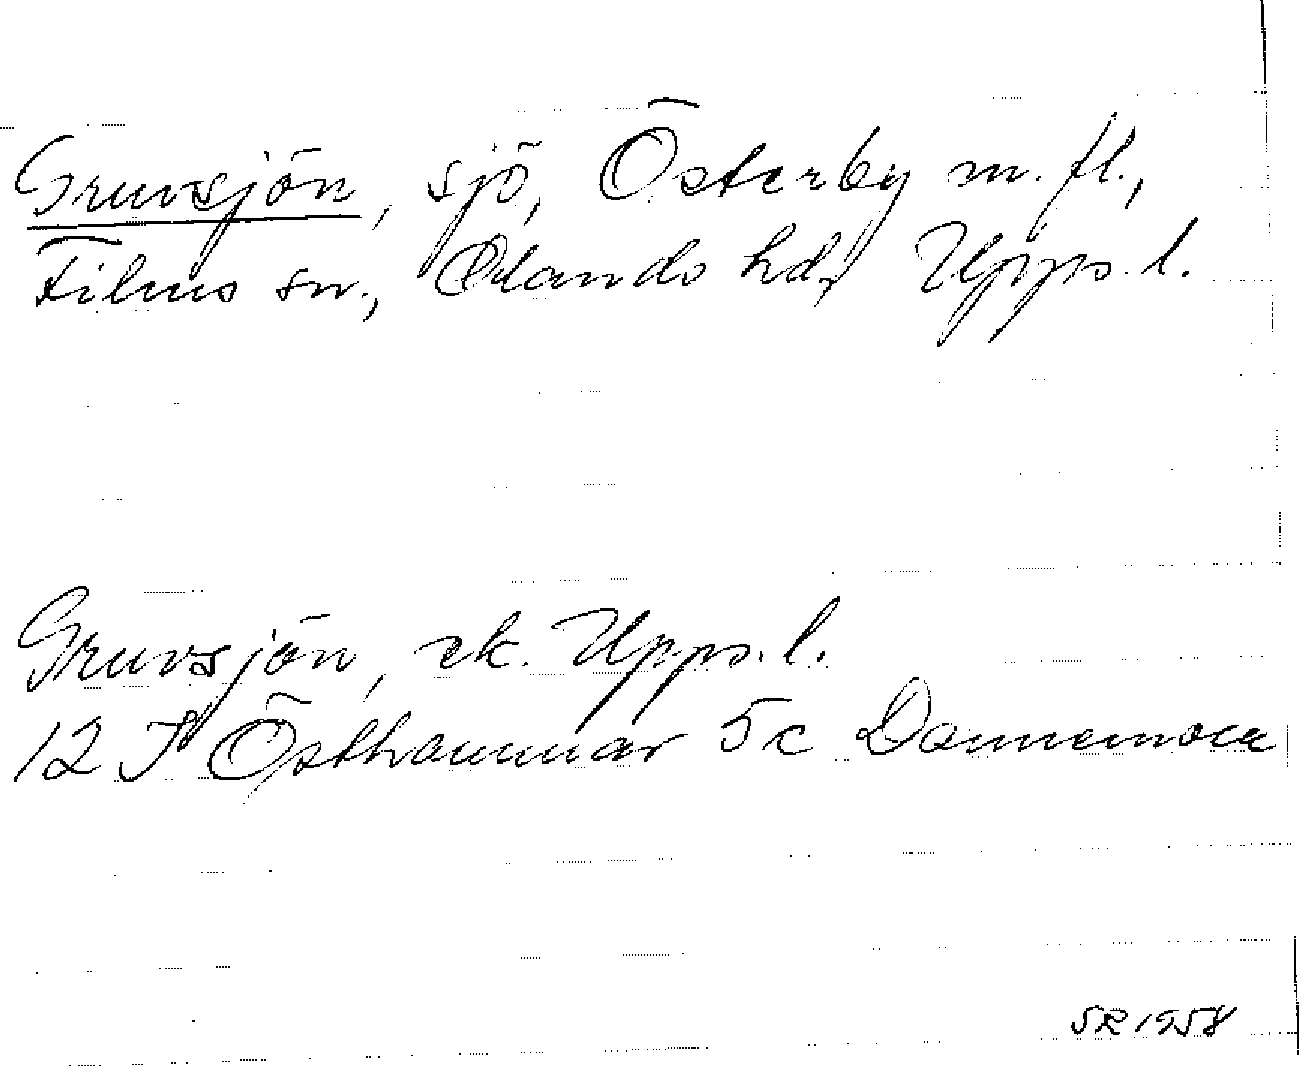 Gruvsjön, sjö, Österby m. fl.,
Films sn., Olands hd, Upps. l.
Gruvsjön, ek. Upps. l.
12 I Östhammar 5c Dannemora
SR 1958